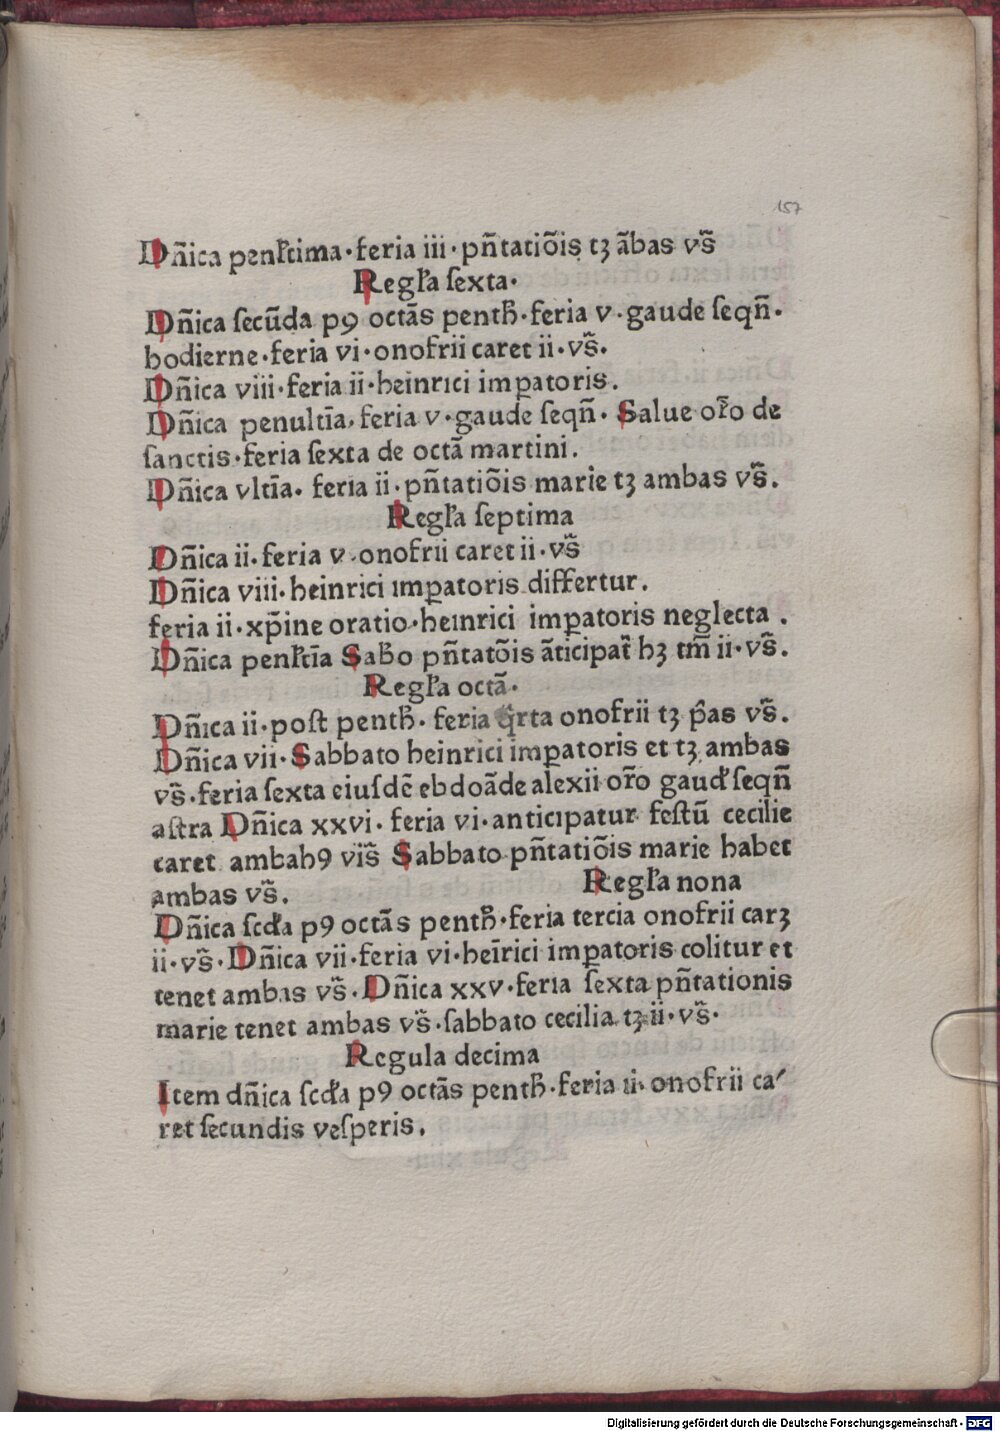 157
Dn̄ica penl̄tima·feria iii·pn̄tatiōis tꝫ ābas vs̄
Regl̄a ſexta·
Dn̄ica ſecūda pꝯ octās penth̄·feria v·gaude ſeqn̄·
hodierne·feria vi·onofrii caret ii·vs̄.
Dn̄ica viii·feria ii·heinrici imꝑatoris.
Dn̄ica penultīa, feria v·gaude ſeqn̄· Salue or̄o de
ſanctis·feria ſexta de octā martini.
Dn̄ica vltīa. feria ii·pn̄tatiōis marie tꝫ ambas vs̄.
Regl̄a ſeptima
Dn̄ica ii·feria v·onofrii caret ii·vs̄
Dn̄ica viii·heinrici imꝑatoris differtur.
feria ii·xp̄ine oratio·heinrici imꝑatoris neglecta.
Dn̄ica penl̄tīa Sab̄o pn̄tatōis āticipat᷑ hꝫ tm̄ ii·vs̄.
Regl̄a octā·
Dn̄ica ii·poſt penth̄·feria q̄rta onofrii tꝫ p̄as vs̄.
Dn̄ica vii·Sabbato heinrici imꝑatoris et tꝫ ambas
vs̄·feria ſexta eiuſdē ebdoāde alexii or̄o gaud̄ ſeqn̄
aſtra Dn̄ica xxvi·feria vi·anticipatur feſtū cecilie
caret ambabꝯ vis̄ Sabbato pn̄tatiōis marie habet
ambas vs̄.
Regl̄a nona
Dn̄ica ſcd̄a pꝯ octās penth̄·feria tercia onofrii carꝫ
ii·vs̄·Dn̄ica vii·feria vi·heīrici imꝑatoris colitur et
tenet ambas vs̄·Dn̄ica xxv·feria ſexta pn̄tationis
marie tenet ambas vs̄·ſabbato cecilia tꝫ ii·vs̄·
Regula decima
Item dn̄ica ſcd̄a pꝯ octās penth̄·feria ii·onofrii ca⸗
ret ſecundis veſperis.
Digitalisierung gefördert durch die Deutsche Forschungsgemeinschaft - DFG